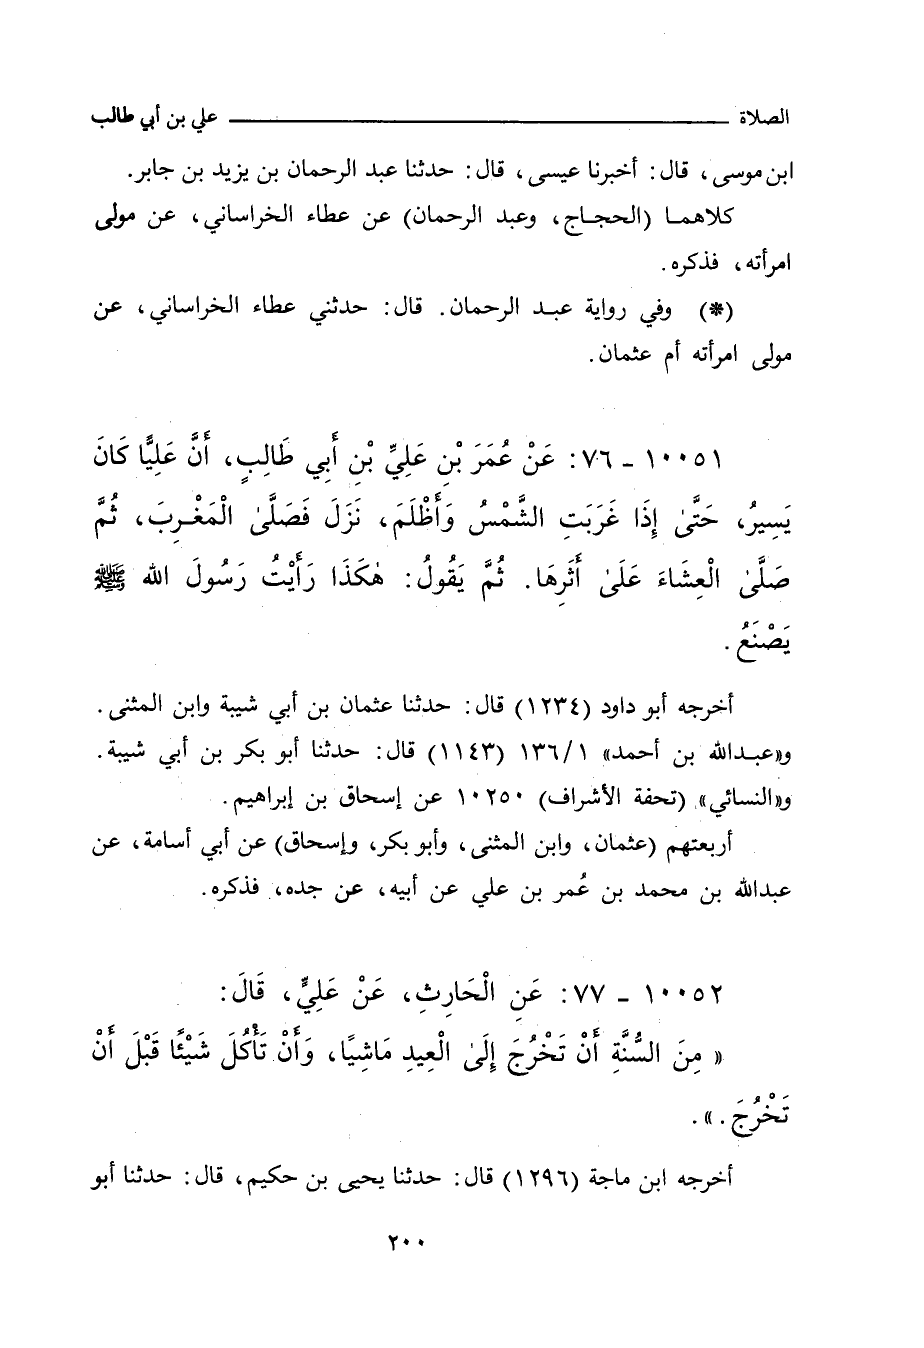 الصلاة ــــــــــــــــــــــــ علي بن أبي طالب
ابن موسى، قال: أخبرنا عيسى، قال: حدثنا عبد الرحمان بن يزيد بن جابر.
كلاهما (الحجاج، وعبد الرحمان) عن عطاء الخراساني، عن مولى
امرأته، فذكره.
(*) وفي رواية عبد الرحمان. قال: حدثني عطاء الخراساني، عن
مولى امرأته أم عثمان.
١٠٠٥١ - ٧٦: عَنْ عُمَرَ بْنِ عَلِيِّ بْنِ أَبِي طَالِبٍ، أَنَّ عَلِيًّا كَانَ
يَسِيرُ، حَتَّىٰ إِذَا غَرَبَتِ الشَّمْسُ وَأَظْلَمَ، نَزَلَ فَصَلَّىٰ الْمَغْرِبَ، ثُمَّ
صَلَّىٰ الْعِشَاءَ عَلَىٰ أَثَرِهَا. ثُمَّ يَقُولُ: هٰكَذَا رَأَيْتُ رَسُولَ الله ﷺ
يَصْنَعُ.
أخرجه أبو داود (١٢٣٤) قال: حدثنا عثمان بن أبي شيبة وابن المثنى.
و«عبدالله بن أحمد» ١٣٦/١ (١١٤٣) قال: حدثنا أبو بكر بن أبي شيبة.
و«النسائي» (تحفة الأشراف) ١٠٢٥٠ عن إسحاق بن إبراهيم.
أربعتهم (عثمان، وابن المثنى، وأبو بكر، وإسحاق) عن أبي أسامة، عن
عبدالله بن محمد بن عُمر بن علي عن أبيه، عن جده، فذكره.
١٠٠٥٢ - ٧٧: عَنِ الْحَارِثِ، عَنْ عَلِيٍّ، قَالَ:
« مِنَ السُّنَّةِ أَنْ تَخْرُجَ إِلَىٰ الْعِيدِ مَاشِيًا، وَأَنْ تَأْكُلَ شَيْئًا قَبْلَ أَنْ
تَخْرُجَ .».
أخرجه ابن ماجة (١٢٩٦) قال: حدثنا يحيى بن حكيم، قال: حدثنا أبو
٢٠٠